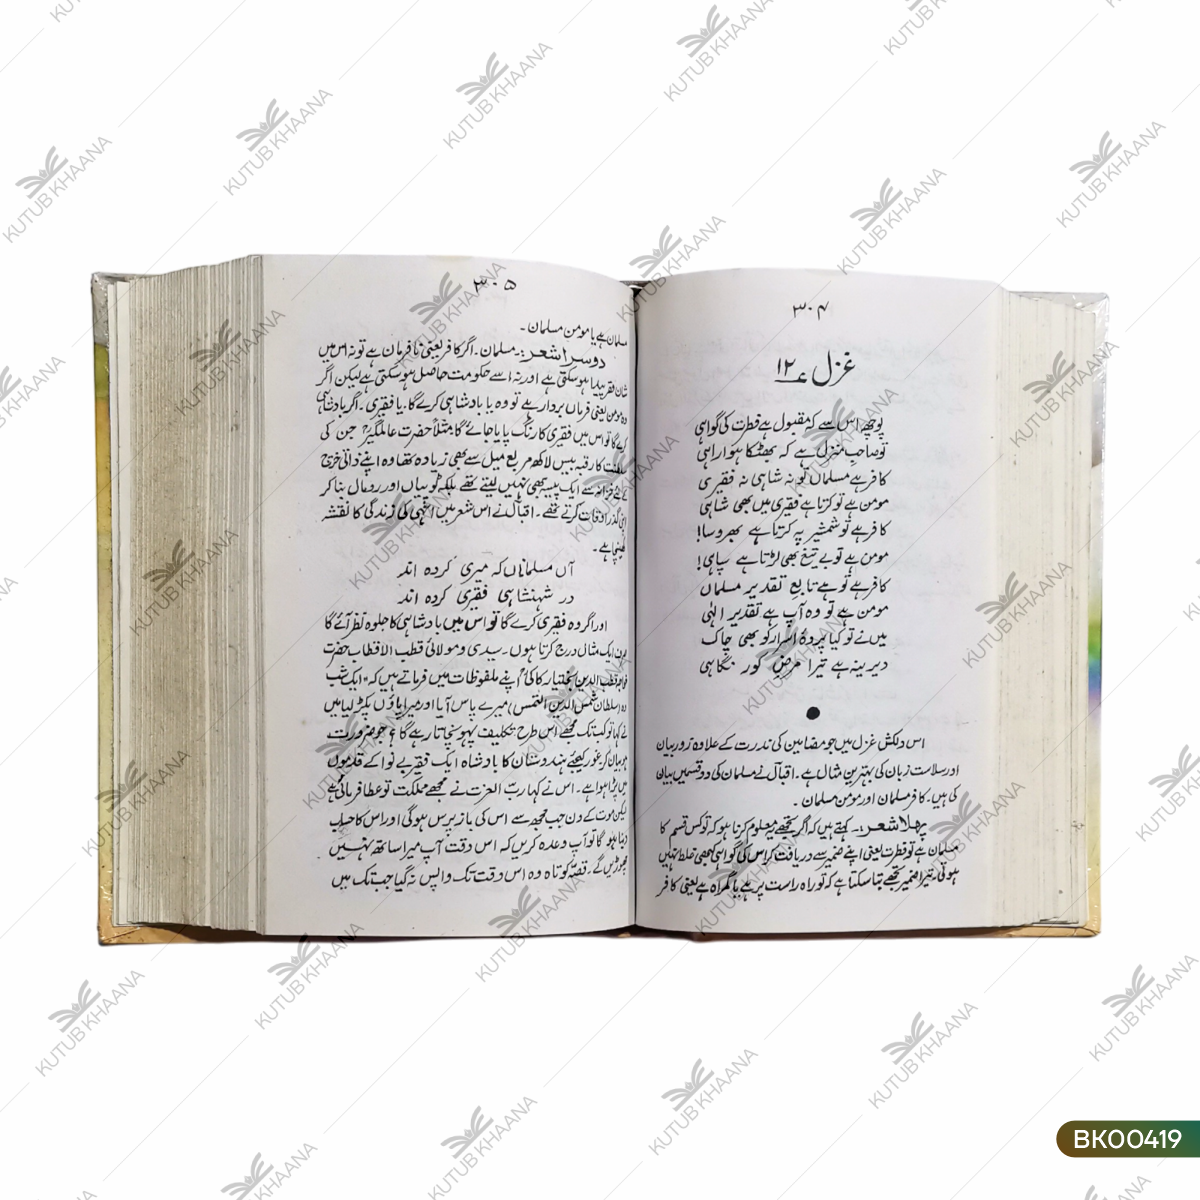 ۳۰۴
غزل ۱۲
پوچھ اس سے کہ مقبول ہے فطرت کی گواہی
تو صاحبِ منزل ہے کہ بھٹکا ہوا راہی
کافر ہے مسلماں تو نہ شاہی نہ فقیری
مومن ہے تو کرتا ہے فقیری میں بھی شاہی
کافر ہے تو شمشیر پہ کرتا ہے بھروسا!
مومن ہے تو بے تیغ بھی لڑتا ہے سپاہی!
کافر ہے تو ہے تابع تقدیر مسلماں
مومن ہے تو وہ آپ ہے تقدیر الٰہی
میں نے تو کیا پردۂ اسرار کو بھی چاک
دیرینہ ہے تیرا مرضِ کور نگاہی
اس دلکش غزل میں جو مضامین کی ندرت کے علاوہ زور بیان
اور سلاست زبان کی بہترین مثال ہے۔ اقبال نے مسلمان کی دو قسمیں بیان
کی ہیں۔ کافر مسلمان اور مومن مسلمان۔
پہلا شعر:۔ کہتے ہیں کہ اگر تجھے یہ معلوم کرنا ہو کہ تو کس قسم کا
مسلمان ہے تو فطرت یعنی اپنے ضمیر سے دریافت کر اس کی گواہی کبھی غلط نہیں
ہوتی۔ تیرا ضمیر تجھے بتا سکتا ہے کہ تو راہ راست پر ہے یا گمراہ ہے یعنی کافر
۳۰۵
مسلمان ہے یا مومن مسلمان۔
دوسرا شعر:۔ مسلمان۔ اگر کافر یعنی نافرمان ہے تو نہ اس میں
شان فقر پیدا ہو سکتی ہے اور نہ اسے حکومت حاصل ہو سکتی ہے لیکن اگر
وہ مومن یعنی فرماں بردار ہے تو وہ یا بادشاہی کرے گا۔ یا فقیری۔ اگر بادشاہی
کرے گا تو اس میں فقیری کا رنگ پایا جائے گا مثلاً حضرت عالمگیرؒ جن کی
سلطنت کا رقبہ بیس لاکھ مربع میل سے بھی زیادہ تھا وہ اپنے ذاتی خرچ
کے لئے خزانہ سے ایک پیسہ بھی نہیں لیتے تھے بلکہ ٹوپیاں اور رومال بنا کر
اپنی گذر اوقات کرتے تھے۔ اقبال نے اس شعر میں انہی کی زندگی کا نقشہ
کھینچا ہے۔
آں مسلماناں کہ میری کردہ اند
در شہنشاہی فقیری کردہ اند
اور اگر وہ فقیری کرے گا تو اس میں بادشاہی کا جلوہ نظر آئے گا
ایک مثال درج کرتا ہوں۔ سیدی و مولائی قطب الاقطاب حضرت
خواجہ قطب الدین بختیار کاکیؒ اپنے ملفوظات میں فرماتے ہیں کہ "ایک شب
وہ (سلطان شمس الدین التمس) میرے پاس آیا اور میرا پاؤں پکڑ لیا میں
نے کہا تو کب تک مجھے اس طرح تکلیف پہونچاتا رہے گا؟ جو ضرورت
ہو بیان کر غور کیجئے ہندوستان کا بادشاہ ایک فقیر بے نوا کے قدموں
میں پڑا ہوا ہے۔ اس نے کہا رب العزت نے مجھے مملکت تو عطا فرمائی ہے
لیکن موت کے دن جب مجھ سے اس کی باز پرس ہو گی اور اس کا حساب
دینا ہو گا تو آپ وعدہ کریں کہ اس وقت آپ میرا ساتھ نہیں
چھوڑیں گے۔ قصہ کوتاہ وہ اس وقت تک واپس نہ گیا جب تک میں
KUTUB KHAANA
BK00419